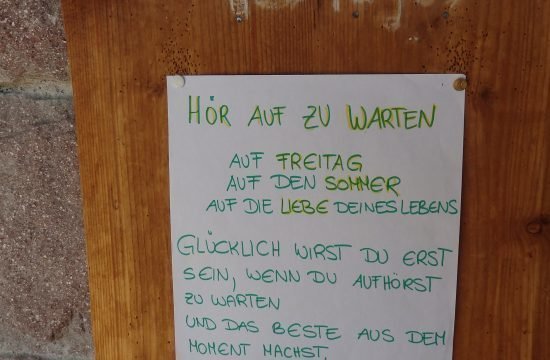 HÖR AUF ZU WARTEN
AUF FREITAG
AUF DEN SOMMER
AUF DIE LIEBE DEINES LEBENS
GLÜCKLICH WIRST DU ERST
SEIN, WENN DU AUFHÖRST
ZU WARTEN
UND DAS BESTE AUS DEM
MOMENT MACHST.